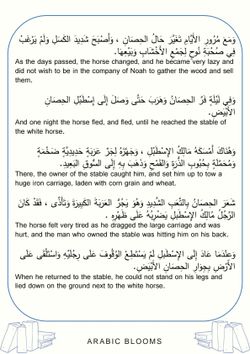 وَمَعَ مُرُورِ الأَيَّامِ تَغَيَّرَ حَالُ الحِصَانِ ، وَأَصْبَحَ شَدِيدَ الكَسَلِ وَلَمْ يَرْغَبْ
فِي صُحْبَةِ نُوحٍ لِجَمْعِ الأَخْشَابِ وَبَيْعِهَا.
As the days passed, the horse changed, and he became very lazy and
did not wish to be in the company of Noah to gather the wood and sell
them.
وَفِي لَيْلَةٍ فَرَّ الحِصَانُ وَهَرَبَ حَتَّى وَصَلَ إِلَى إِسْطَبْلِ الحِصَانِ
الأَبْيَضِ.
And one night the horse fled, and fled, until he reached the stable of
the white horse.
وَهُنَاكَ أَمْسَكَهُ مَالِكُ الإِسْطَبْلِ ، وَجَهَّزَهُ لِجَرِّ عَرَبَةٍ حَدِيدِيَّةٍ ضَخْمَةٍ
وَمُحَمَّلَةٍ بِحُبُوبِ الذُّرَةِ وَالقَمْحِ وَذَهَبَ بِهِ إِلَى السُّوقِ البَعِيدِ.
There, the owner of the stable caught him, and set him up to tow a
huge iron carriage, laden with corn grain and wheat.
شَعَرَ الحِصَانُ بِالتَّعَبِ الشَّدِيدِ وَهُوَ يَجُرُّ العَرَبَةَ الكَبِيرَةَ وَتَأَذَّى ، فَقَدْ كَانَ
الرَّجُلُ مَالِكُ الإِسْطَبْلِ يَضْرِبُهُ عَلَى ظَهْرِهِ .
The horse felt very tired as he dragged the large carriage and was
hurt, and the man who owned the stable was hitting him on his back.
وَعِنْدَمَا عَادَ إِلَى الإِسْطَبْلِ لَمْ يَسْتَطِعْ الوُقُوفَ عَلَى رِجْلَيْهِ وَاسْتَلْقَى عَلَى
الأَرْضِ بِجِوَارِ الحِصَانِ الأَبْيَضِ.
When he returned to the stable, he could not stand on his legs and
lied down on the ground next to the white horse.
ARABIC BLOOMS